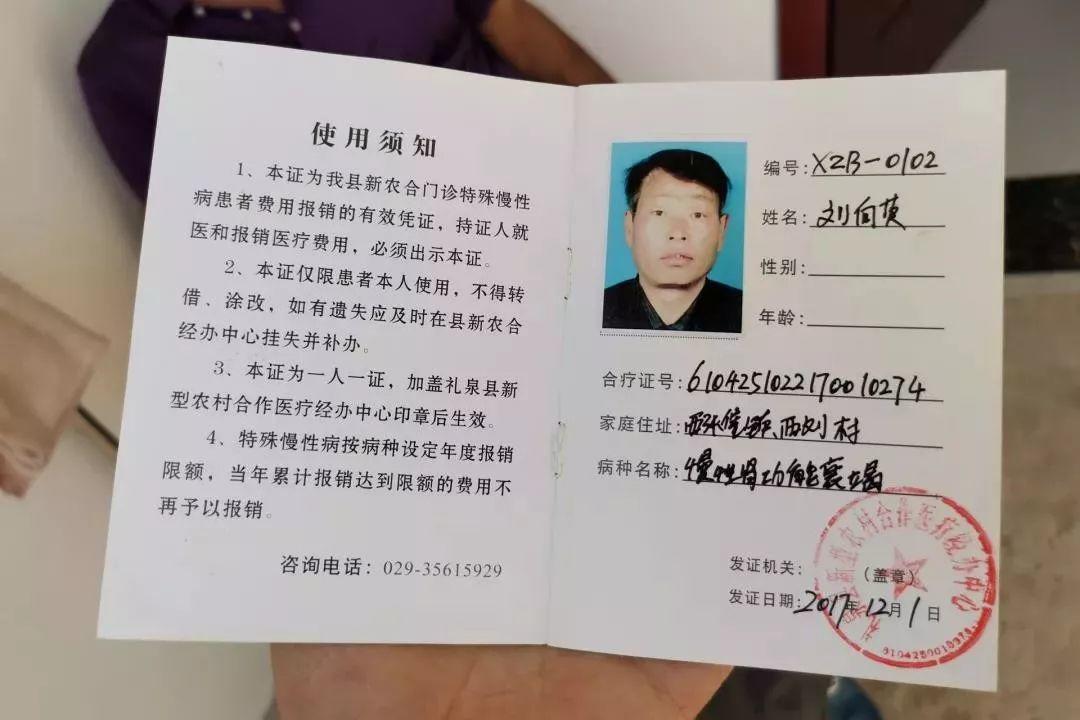 使用须知
1、本证为我县新农合门诊特殊慢性
病患者费用报销的有效凭证，持证人就
医和报销医疗费用，必须出示本证。
2、本证仅限患者本人使用，不得转
借、涂改，如有遗失应及时在县新农合
经办中心挂失并补办。
3、本证为一人一证，加盖礼泉县新
型农村合作医疗经办中心印章后生效。
4、特殊慢性病按病种设定年度报销
限额，当年累计报销达到限额的费用不
再予以报销。
咨询电话：029-35615929
编号：XZB-0102
姓名：刘向英
性别：
年龄：
合疗证号：6104251022170010274
家庭住址：西刘村
病种名称：慢性肾功能衰竭
发证机关：（盖章）
发证日期：2017年12月1日
新型农村合作医疗经办中心